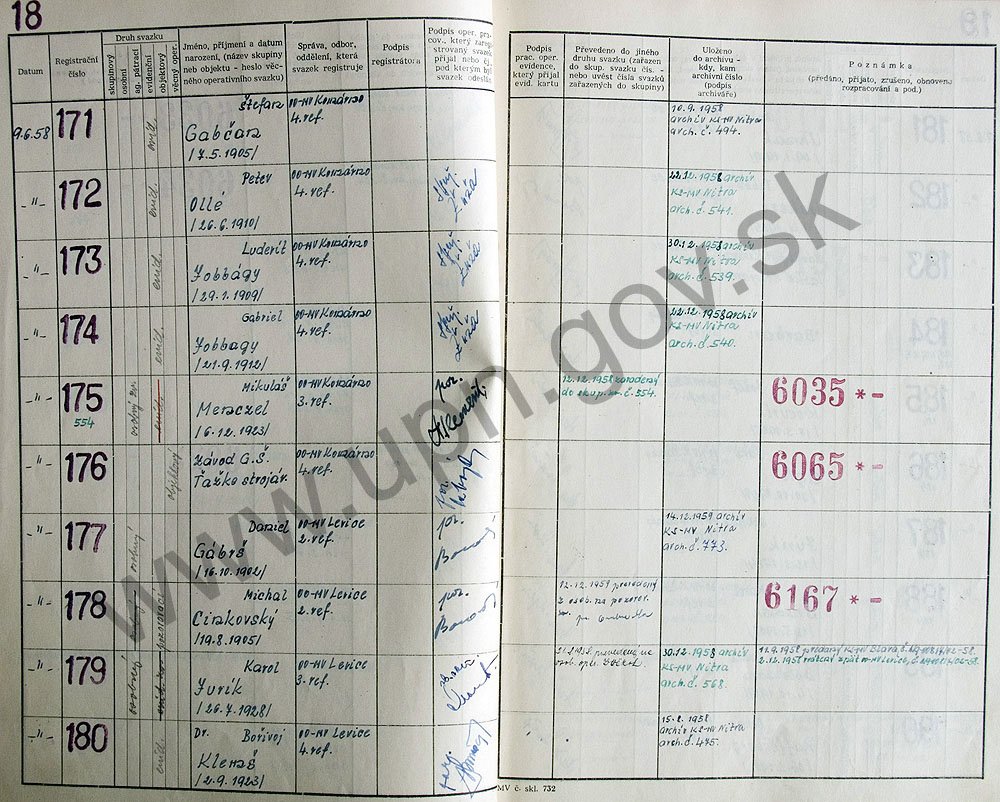 18
Datum
Registrační číslo
Druh svazku
skupinový
osobní
ag. pátrací
evidenční
objektový
věcný oper.
Jméno, příjmení a datum
narození, (název skupiny
neb objektu - heslo věc-
ného operativního svazku)
Správa, odbor,
oddělení, která
svazek registruje
Podpis
registrátora
Podpis oper. pra-
cov., který zareg
strovaný svazek
přijal nebo
pod kterým byl
svazek odeslán
Podpis
prac. oper.
evidence,
který přijal
evid. kartu
Převedeno do jiného
druhu svazku (zařazen
do skup. svazku čís. -
nebo uvést čísla svazků
zařazených do skupiny)
Uloženo
do archivu -
kdy, kam
archivní číslo
(podpis
archiváře)
Poznámka
(předáno, přijato, zrušeno, obnovena
rozpracování a pod.)
9.6.58 171 evid. Štefan 00-MV Komárno
4. ref.
Gabčan
/7.5.1905/
10.9.1958
archív KS-MV Nitra
arch. č. 494.
-"- 172 evid. Peter 00-MV Komárno
4. ref.
Ollé
/26.6.1910/
22.12.1958 archív
KS-MV Nitra
arch. č. 541.
-"- 173 evid. Ľuderít 00-MV Komárno
4. ref.
Jobbágy
/29.1.1909/
30.12.1958 archív
KS-MV Nitra
arch. č. 539.
-"- 174 evid. Gabriel 00-MV Komárno
4. ref.
Jobbagy
/21.9.1912/
22.12.1958 archív
KS-MV Nitra
arch. č. 540.
-"- 175 Mikuláš 00-MV Komárno
3. ref.
554
Menczel
/6.12.1923/
por.
12.12.1958 zaradený
do skup. zv. č. 554.
6035 *-
-"- 176 objektový Závod G.Š. 00-MV Komárno
4. ref.
Ťažké strojár.
por.
6065 *-
-"- 177 osobný Daniel 00-MV Levice
2. ref.
Gábrš
/16.10.1902/
por.
14.12.1959 archív
KS-MV Nitra
arch. č. 773.
-"- 178 pozorovací Michal 00-MV Levice
2. ref.
Cirakovský
/19.8.1905/
por.
12.12.1959 prevedený
z osob. na pozorov.
6167 *-
-"- 179 osobný Karol 00-MV Levice
3. ref.
Jurík
/26.7.1928/
30.12.1958 archív
KS-MV Nitra
arch. č. 568.
-"- 180 evid. Dr. Bořivoj 00-MV Levice
4. ref.
Klemaš
/2.9.1923/
15.8.1958
archív KS-MV Nitra
arch. č. 475.
MV č. skl. 732
www.upn.gov.sk